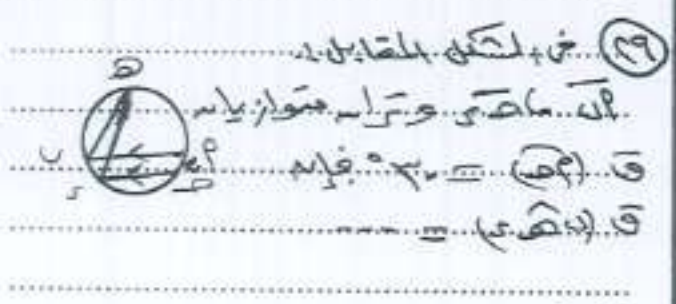 ٢٩ في الشكل المقابل :
أب ، جـ د وتران متوازيان
ق (أجـ) = ٣٠° فإن
ق (ب هـ د) = ----
هـ
ب
د
أ
جـ